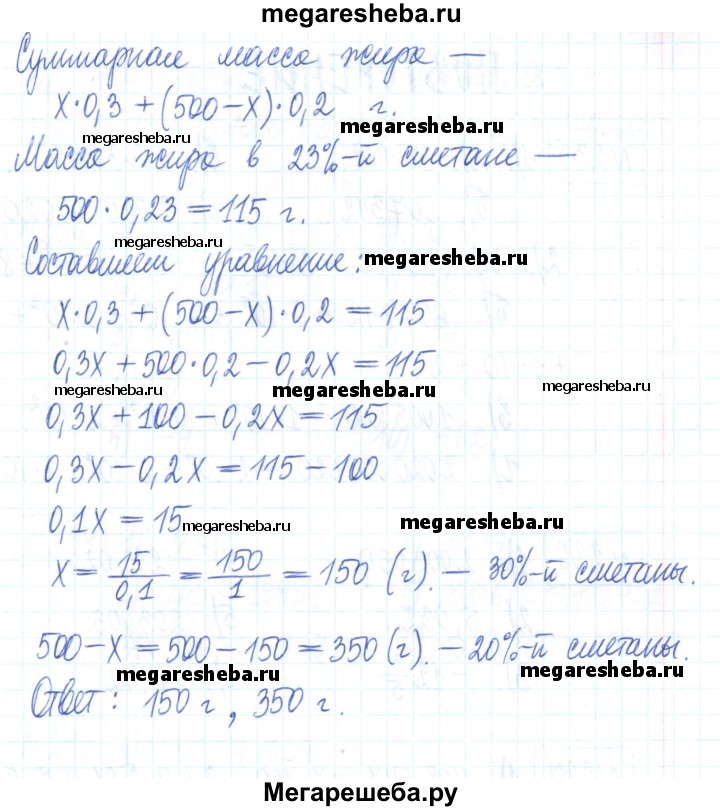 megaresheba.ru
Суммарная масса жира —
x·0,3 + (500 – x)·0,2 г.
megaresheba.ru
megaresheba.ru
Масса жира в 23%-й сметане —
500·0,23 = 115 г.
megaresheba.ru
Составляем уравнение:
megaresheba.ru
x·0,3 + (500 – x)·0,2 = 115
0,3x + 500·0,2 – 0,2x = 115
megaresheba.ru
megaresheba.ru
megaresheba.ru
0,3x + 100 – 0,2x = 115
0,3x – 0,2x = 115 – 100
0,1x = 15
megaresheba.ru
megaresheba.ru
x = 15/0,1 = 150/1 = 150 (г). – 30%-й сметаны.
500 – x = 500 – 150 = 350 (г). – 20%-й сметаны.
megaresheba.ru
megaresheba.ru
Ответ: 150 г, 350 г.
Мегарешеба.ру